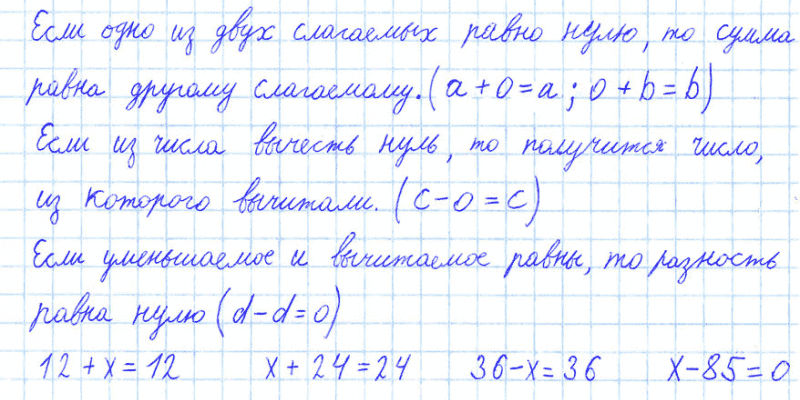 Если одно из двух слагаемых равно нулю, то сумма
равна другому слагаемому. (a + 0 = a ; 0 + b = b)
Если из числа вычесть нуль, то получится число,
из которого вычитали. (c - 0 = c)
Если уменьшаемое и вычитаемое равны, то разность
равна нулю (d - d = 0)
12 + x = 12 x + 24 = 24 36 - x = 36 x - 85 = 0